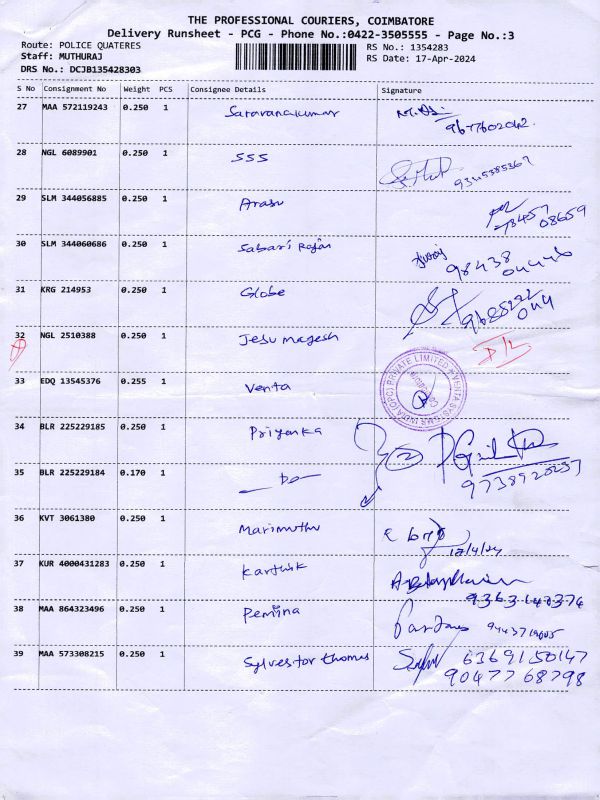 THE PROFESSIONAL COURIERS, COIMBATORE
Delivery Runsheet - PCG - Phone No.:0422-3505555 - Page No.:3
Route: POLICE QUATERES RS No.: 1354283
Staff: MUTHURAJ RS Date: 17-Apr-2024
DRS No.: DCJB135428303
S No Consignment No Weight PCS Consignee Details Signature
27 MAA 572119243 0.250 1 Saravanakumar
9677602042.
28 NGL 6089901 0.250 1 SSS 9345385367
29 SLM 344056885 0.250 1 Arasu
98457
08659
30 SLM 344060686 0.250 1 Sabari Rajan
98438
31 KRG 214953 0.250 1 Globe
9685222
044
32 NGL 2510388 0.250 1 Jesu magesh
D/L
33 EDQ 13545376 0.255 1 Venta
VENTA SYSTEMS INDIA (OPC) PRIVATE LIMITED
34 BLR 225229185 0.250 1 Priyanka 2
9738920237
35 BLR 225229184 0.170 1 — Do —
36 KVT 3061380 0.250 1 Marimuthu
18/4/24
37 KUR 4000431283 0.250 1 Karthik
9363148374
38 MAA 864323496 0.250 1 Pemina 9443719005
39 MAA 573308215 0.250 1 Sylvestor thomas 6369150147
9047768798